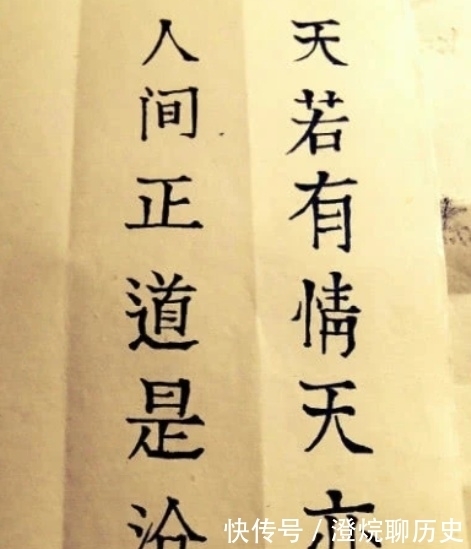 天若有情天亦
人间正道是沧
快传号／澄烷聊历史